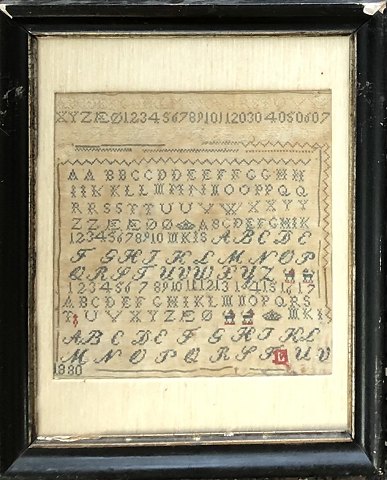 XYZÆØ123456789101120304050607
AABBCCDDEEFFGGHH
IIKKLLMMNNOOPPQQ
RRSSTTUUVVXXYY
ZZÆÆØØABCDEFGHIK
12345678910MKISABCDE
FGHIKLMNOP
QRSTUVWXYZ
1234567891011121314151617
ABCDEFGHIKLMNOPQRS
TUVXYZÆØMKI
ABCDEFGHIKL
MNOPQRSTUV
1880